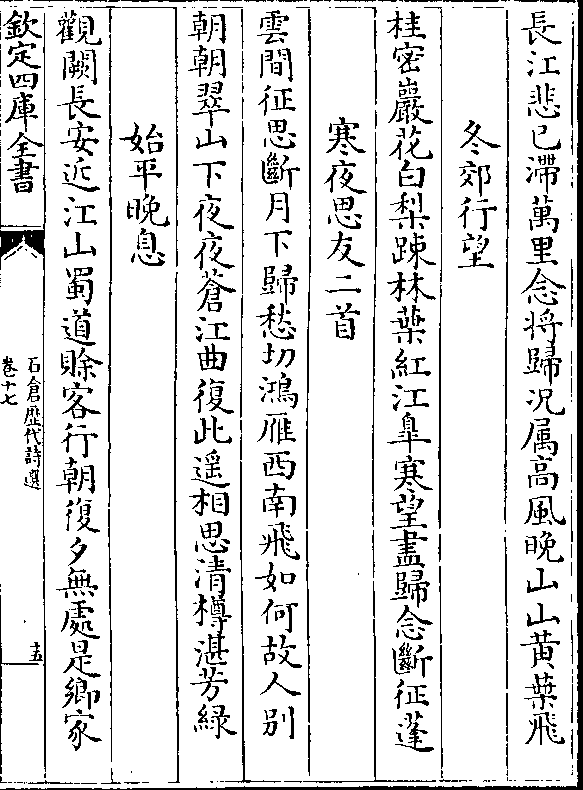 長江悲已滯萬里念将歸況属高風晚山山黄葉飛
冬郊行望
桂密巖花白梨踈林葉紅江臯寒望盡歸念斷征蓬
寒夜思友二首
雲間征思斷月下歸愁切鴻雁西南飛如何故人别
朝朝翠山下夜夜蒼江曲復此遥相思清樽湛芳綠
始平晚息
觀闕長安近江山蜀道賖客行朝復夕無處是鄉家
欽定四庫全書
石倉歷代詩選
卷十七
十五